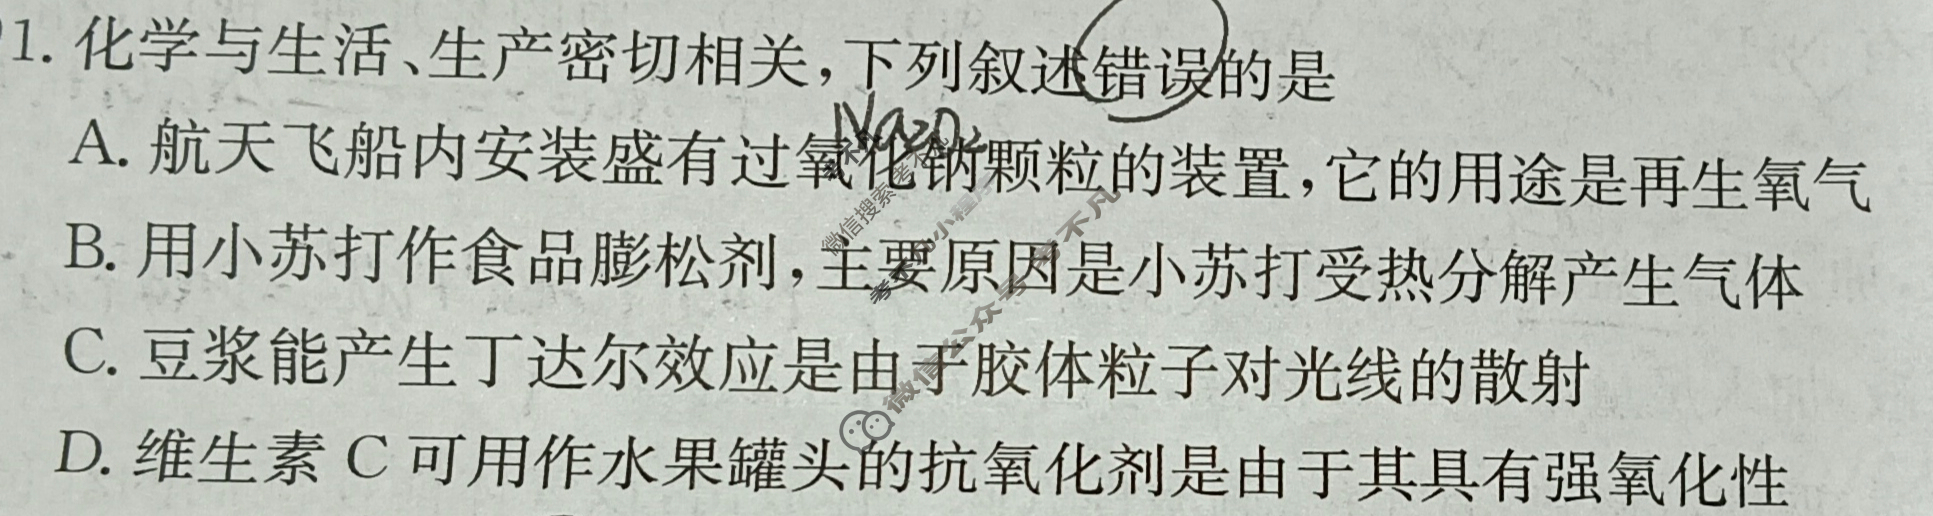 1. 化学与生活、生产密切相关,下列叙述错误的是
Na₂O₂
A. 航天飞船内安装盛有过氧化钠颗粒的装置,它的用途是再生氧气
B. 用小苏打作食品膨松剂,主要原因是小苏打受热分解产生气体
C. 豆浆能产生丁达尔效应是由于胶体粒子对光线的散射
D. 维生素 C 可用作水果罐头的抗氧化剂是由于其具有强氧化性
微信搜索
微信公众号 考不凡